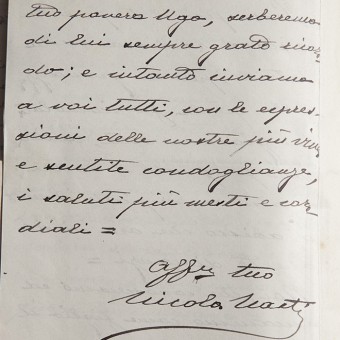 tuo povero Ugo, serberemo
di lui sempre grato ricor=
do; e intanto inviamo
a voi tutti, con le espres=
sioni delle nostre più vive
e sentite condoglianze,
i saluti più mesti e cor=
diali =
Aff. tuo
Nicola